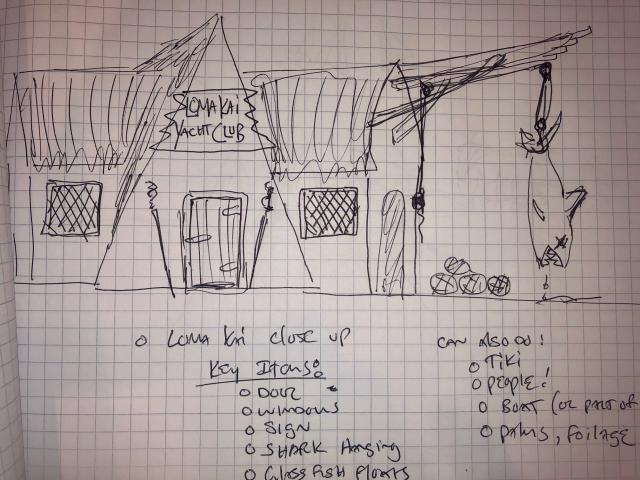 LOMA KAI
YACHT CLUB
LOMA KAI CLOSE UP
KEY ITEMS:
DOOR
WINDOWS
SIGN
SHARK HANGING
GLASS FISH FLOATS
CAN ALSO DO!
TIKI
PEOPLE!
BOAT (OR PART OF
PALMS, FOILAGE